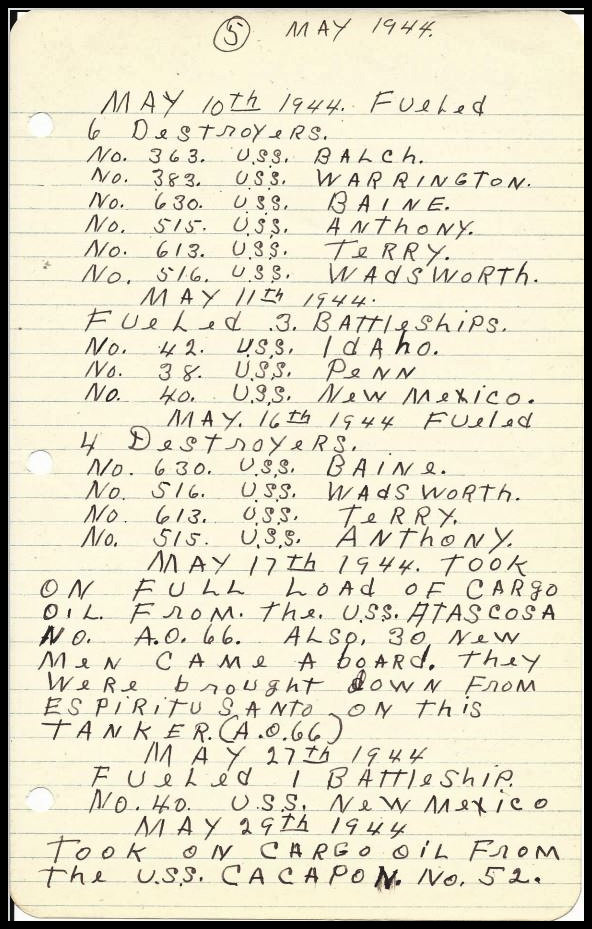 ⑤ MAY 1944.
MAY 10th 1944. Fueled
6 Destroyers.
No. 363. U.S.S. BALCh.
No. 383. U.S.S. WARRINGTON.
No. 630. U.S.S. BAINE.
No. 515. U.S.S. ANThONY.
No. 613. U.S.S. TeRRY.
No. 516. U.S.S. WAdSWORTh.
MAY 11th 1944.
FUeLed .3. BATTleShiPS.
No. 42. U.S.S. IdAho.
No. 38. U.S.S. PeNN
No. 40. U.S.S. New Mexico.
MAY. 16th 1944 FUeled
4 DestroyeRS.
No. 630. U.S.S. BAiNe.
No. 516. U.S.S. WAdSWoRTh.
No. 613. U.S.S. TeRRY.
No. 515. U.S.S. ANThoNY.
MAY 17th 1944. TOOK
ON FULL LOAd OF CARgo
OIL. FROM. the. U.S.S. ATASCOSA
No. A.O. 66. ALSO, 30 New
MeN CAMe A boARd. they
WeRe brought down FROM
ESPIRITU SANTO ON this
TANKER. (A.O.66)
MAY 27th 1944
FUeLed 1 BATTleShiP.
No. 40. U.S.S. New Mexico
MAY 29th 1944
TOOK ON CARGO OIL FROM
the U.S.S. CACAPON. No. 52.